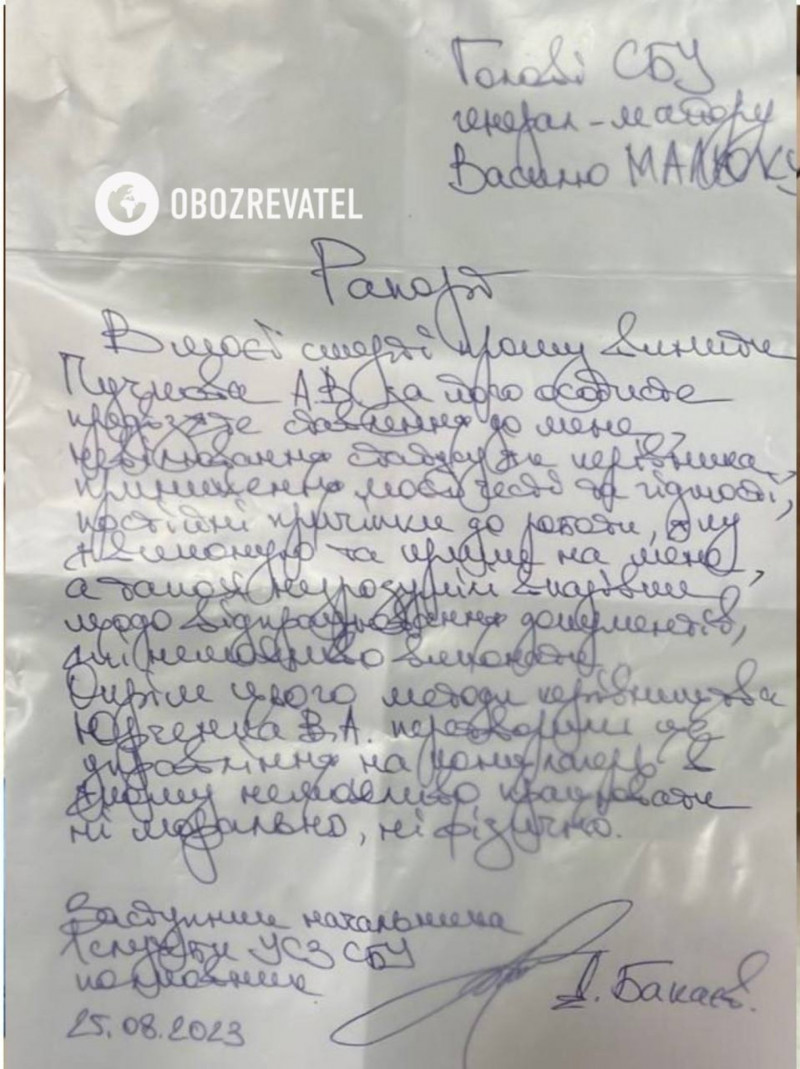 Голові СБУ
генерал-майору
Василю МАЛЮКУ
OBOZREVATEL
Рапорт
В моєї смерті прошу винити
А.В. за його особисте
предвзяте ставлення до мене,
невілювання як керівника,
приниження моєї честі та гідності,
постійні причіпки до роботи, яку
я виконую та крики на мене,
а також незрозумілі вказівки
щодо відпрацювання документів,
які неможливо виконати.
Окрім цього методи керівництва
Юрченка В.А. перетворили
управління на концлагерь в
якому неможливо працювати
ні морально, ні фізично.
Заступник начальника
служби УСЗ СБУ
полковник
25.08.2023
Бакаєв.